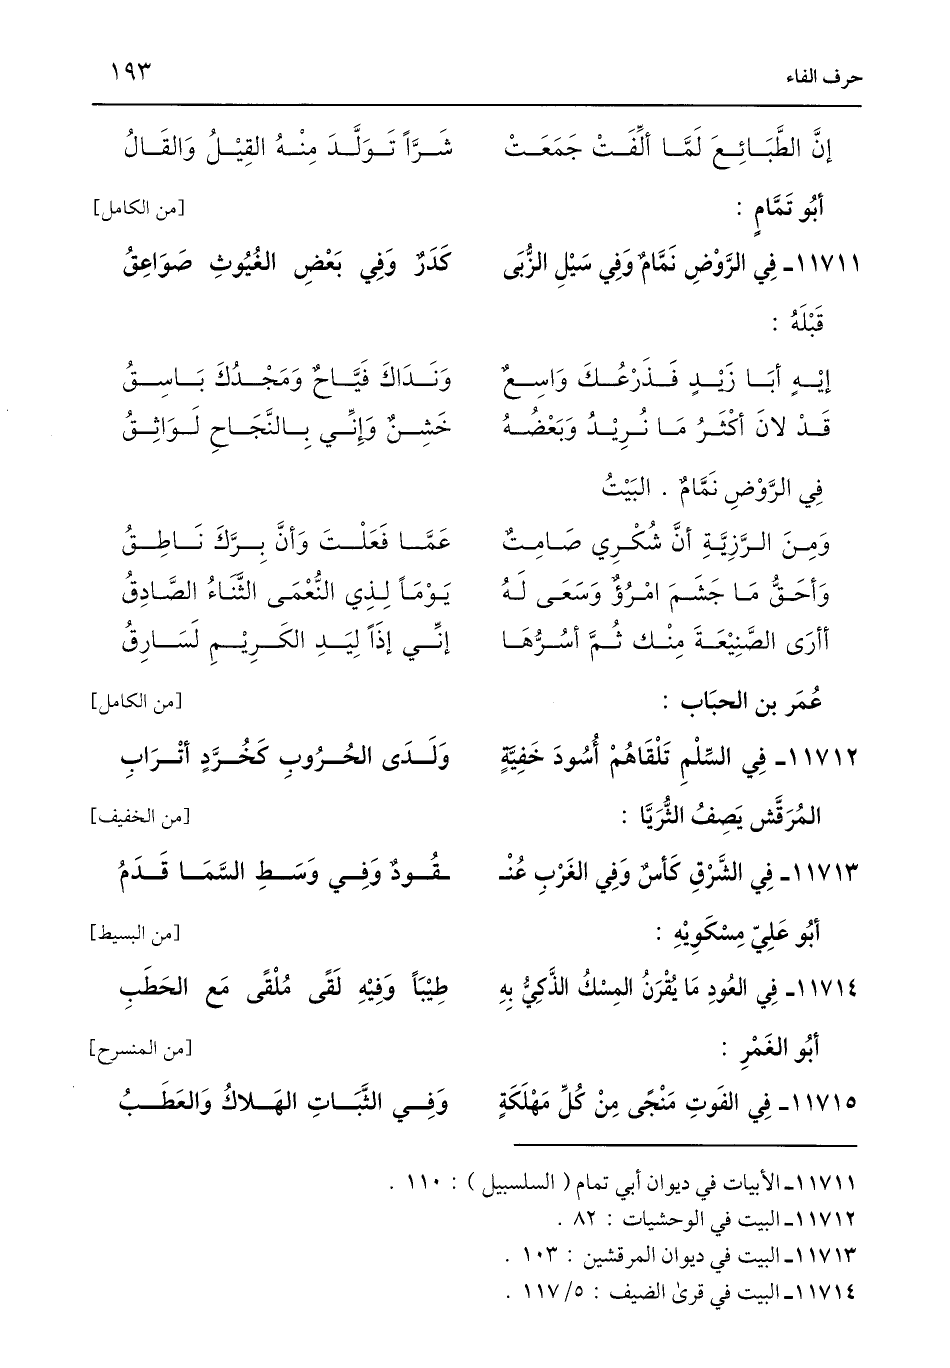 حرف الفاء ١٩٣
إنَّ الطَّبَائِعَ لَمَّا أُلِّفَتْ جَمَعَتْ شَرَّاً تَوَلَّدَ مِنْهُ القِيْلُ وَالقَالُ
أَبُو تَمَّامٍ : [من الكامل]
١١٧١١ـ فِي الرَّوْضِ نَمَّامٌ وَفِي سَيْلِ الزُّبَى كَدَرٌ وَفِي بَعْضِ الغُيُوثِ صَوَاعِقُ
قَبْلَهُ :
إيْهِ أَبَا زَيْدٍ فَذَرْعُكَ وَاسِعٌ وَنَدَاكَ فَيَّاحٌ وَمَجْدُكَ بَاسِقُ
قَدْ لاَنَ أَكْثَرُ مَا نُرِيْدُ وَبَعْضُهُ خَشِنٌ وَإِنِّي بِالنَّجَاحِ لَوَاثِقُ
فِي الرَّوْضِ نَمَّامٌ . البَيْتُ
وَمِنَ الرَّزِيَّةِ أَنَّ شُكْرِي صَامِتٌ عَمَّا فَعَلْتَ وَأَنَّ بِرَّكَ نَاطِقُ
وَأَحَقُّ مَا جَشَمَ امْرُؤٌ وَسَعَى لَهُ يَوْمَاً لِذِي النُّعْمَى الثَّنَاءُ الصَّادِقُ
أَأَرَى الصَّنِيْعَةَ مِنْكَ ثُمَّ أُسُرُّهَا إنِّي إذَاً لِيَدِ الكَرِيْمِ لَسَارِقُ
عُمَر بن الحبَاب : [من الكامل]
١١٧١٢ـ فِي السِّلْمِ تَلْقَاهُمْ أُسُودَ خَفِيَّةٍ وَلَدَى الحُرُوبِ كَخُرَّدٍ أَتْرَابِ
المُرَقَّش يَصِفُ الثُّرَيَّا : [من الخفيف]
١١٧١٣ـ فِي الشَّرْقِ كَأْسٌ وَفِي الغَرْبِ عُنْـ ـقُودٌ وَفِي وَسَطِ السَّمَا قَدَمُ
أَبُو عَلِيّ مِسْكَوِيْهِ : [من البسيط]
١١٧١٤ـ فِي العُودِ مَا يُقْرَنُ المِسْكُ الذَّكِيُّ بِهِ طِيْبَاً وَفِيْهِ لَقًى مُلْقًى مَعَ الحَطَبِ
أَبُو الغَمْرِ : [من المنسرح]
١١٧١٥ـ فِي الفَوتِ مَنْجًى مِنْ كُلِّ مَهْلَكَةٍ وَفِي الثَّبَاتِ الهَلاَكُ وَالعَطَبُ
١١٧١١ـ الأبيات في ديوان أبي تمام ( السلسبيل ) : ١١٠ .
١١٧١٢ـ البيت في الوحشيات : ٨٢ .
١١٧١٣ـ البيت في ديوان المرقشين : ١٠٣ .
١١٧١٤ـ البيت في قرىٰ الضيف : ١١٧/٥ .